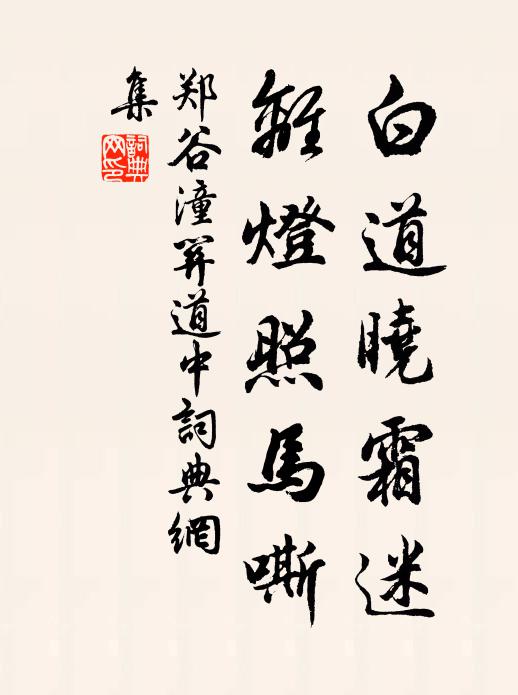 白道曉霜迷
離燈照馬嘶
郑谷潼关道中詞典網
集
詞典
网印